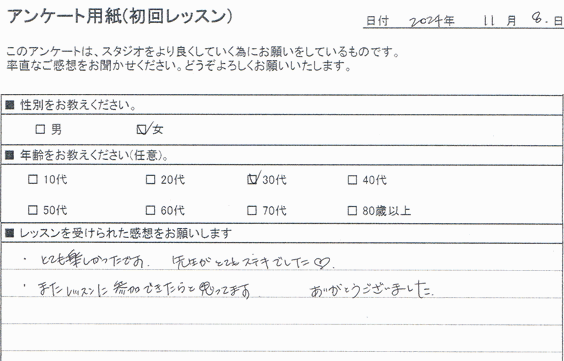 アンケート用紙(初回レッスン)
日付 2024年 11月 8.日
このアンケートは、スタジオをより良くしていく為にお願いをしているものです。
率直なご感想をお聞かせください。どうぞよろしくお願いいたします。
■ 性別をお教えください。
□ 男 ☑ 女
■ 年齢をお教えください(任意)。
□ 10代 □ 20代 ☑ 30代 □ 40代
□ 50代 □ 60代 □ 70代 □ 80歳以上
■ レッスンを受けられた感想をお願いします
・とても楽しかったです。 先生がとてもステキでした♡。
・またレッスンに参加できたらと思ってます ありがとうございました。